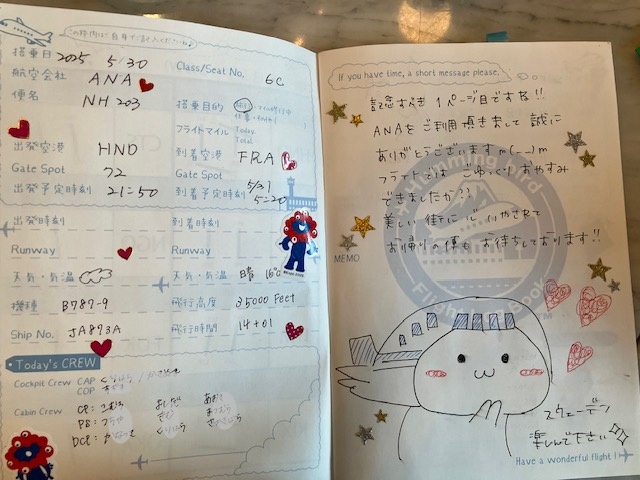 この部分はご自身でご記入くださいね♪
搭乗日 2025 5/30
Class/Seat No. 6C
航空会社 ANA
便名 NH203
搭乗目的
フライトマイル Today
Total
出発空港 HND
到着空港 FRA
Gate Spot 72
Gate Spot
出発予定時刻 21:50
到着予定時刻 5/31 5:20
出発時刻
到着時刻
Runway
Runway
天気・気温
天気・気温 晴 16℃
機種 B787-9
飛行高度 35000 Feet
Ship No. JA873A
飛行時間 14+01
Today's CREW
Cockpit Crew CAP
COP
Cabin Crew CP:
PS:
DCP:
If you have time, a short message please.
記念すべき 1ページ目ですね!!
ANAをご利用頂きまして誠に
ありがとうございますm(_ _)m
フライトではごゆっくりおやすみ
できましたか??
美しい街に心いやされて
お帰りの便もお待ちしております!!
MEMO
Humming Bird
スウェーデン
楽しんで下さい
Have a wonderful flight!